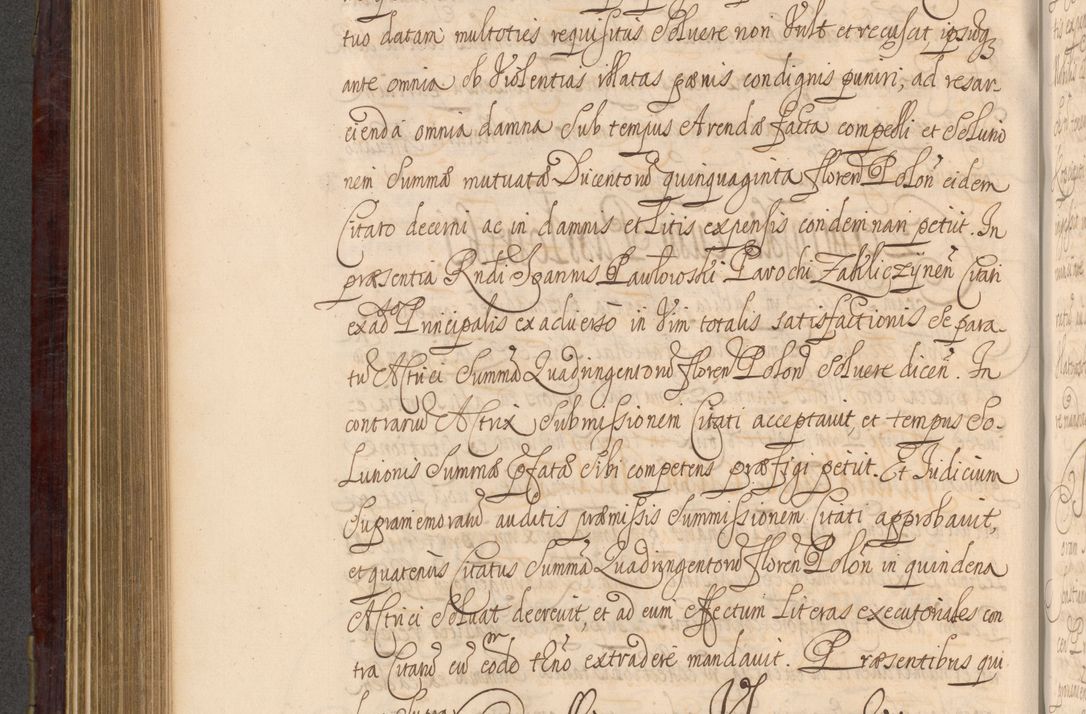 tuo datam multoties requisitus Solvere non Vult et recusat ipsumq3
ante omnia ob Violentias illatas pænis condignis puniri, ad resar-
cienda omnia damna Sub tempus Arendæ facta compelli et Solutio
nem Summæ mutuatæ Ducentorū quinquaginta floren̄ Polon̄ eidem
Citato decerni ac in damnis et Litis expensis condemnari petiit. In
præsentia Rn̄di Joannis Pawlowski Parochi Zakliczÿnen̄ Citati
ex ad Principalis ex adverso in Vim totalis satisfactionis Se para-
tū Actrici Summā Quadringentorū floren̄ Polon̄ Solvere dicen̄. In
contrariū Actrix Submissionem Citati acceptavit, et tempus So-
Lutionis Summæ pfatæ Sibi competens præfigi petiit. Et Judicium
Supramemoratū auditis præmissis Summissionem Citati approbavit,
et quatenus Citatus Summā Quadringentorū floren̄ Polon̄ in quindena
Actrici Solvat decrevit, et ad eum effectum Literas executoriales con
tra Citatū cū eodē tn̄o extradere mandavit. Præsentibus qui